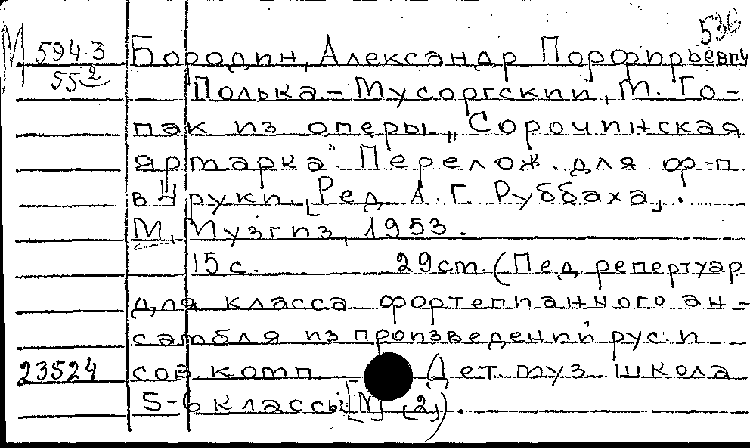 536
М 594.3
55²
Бородин, Александр Порфирьевич
Полька - Мусоргский, М. Го-
пак из оперы „Сорочинская
ярмарка". Перелож. для ф-п
в 4 руки. [Ред. А. Г. Руббаха].
М, Музгиз, 1953.
15 с. 29 см. (Пед. репертуар
для класса фортепианного ан-
самбля из произведений рус. и
23524 сов. комп. Дет. муз. школа
5-6 классы [N] (2).